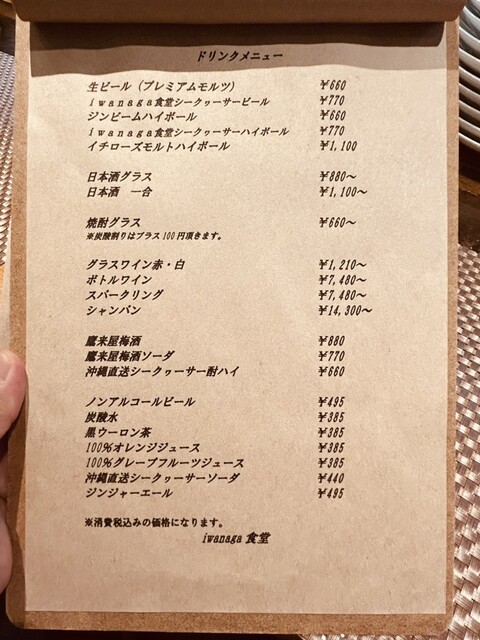 ドリンクメニュー
生ビール（プレミアムモルツ） ￥660
iwanaga食堂シークヮーサービール ￥770
ジンビームハイボール ￥660
iwanaga食堂シークヮーサーハイボール ￥770
イチローズモルトハイボール ￥1,100
日本酒グラス ￥880～
日本酒　一合 ￥1,100～
焼酎グラス ￥660～
※炭酸割りはプラス100円頂きます。
グラスワイン赤・白 ￥1,210～
ボトルワイン ￥7,480～
スパークリング ￥7,480～
シャンパン ￥14,300～
鷹来屋梅酒 ￥880
鷹来屋梅酒ソーダ ￥770
沖縄直送シークヮーサー酎ハイ ￥660
ノンアルコールビール ￥495
炭酸水 ￥385
黒ウーロン茶 ￥385
100％オレンジジュース ￥385
100％グレープフルーツジュース ￥385
沖縄直送シークヮーサーソーダ ￥440
ジンジャーエール ￥495
※消費税込みの価格になります。
iwanaga食堂